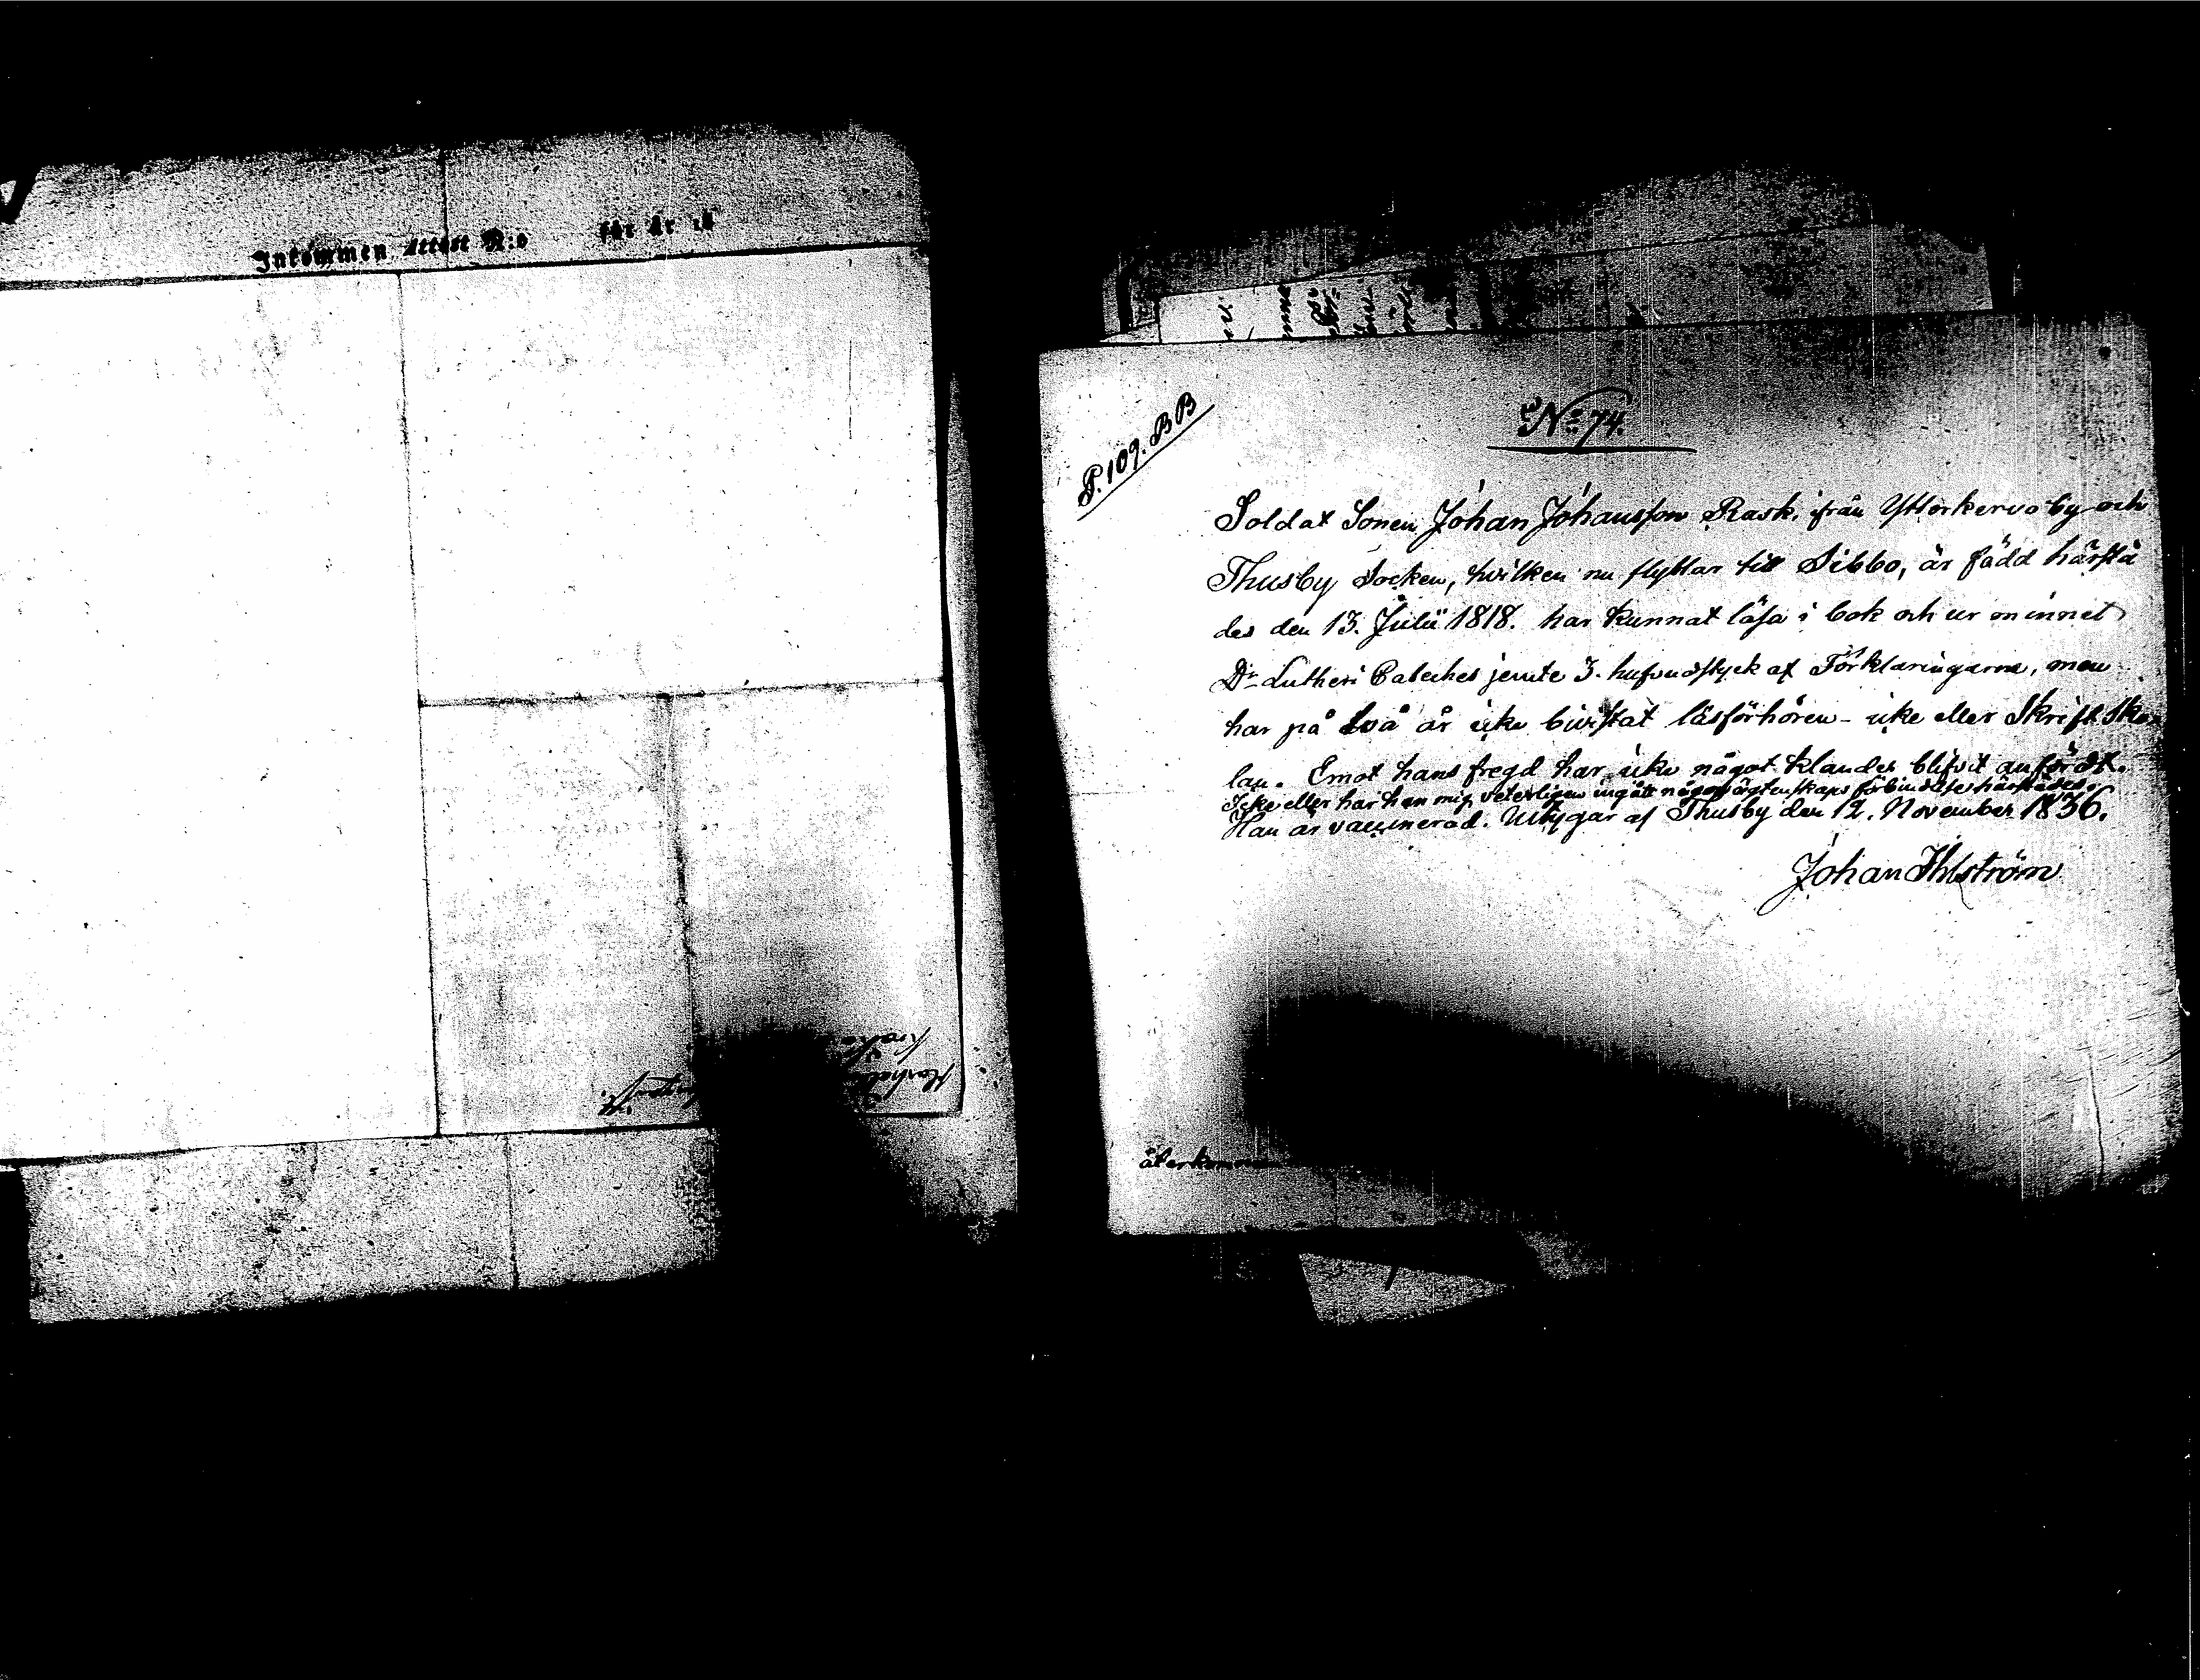 Inkommen Attest N:o för År 18
P. 109. BB
No 74.
Soldat Sonen Johan Johansson Rask, ifrån Ytterkervo by och
Thusby Socken, hvilken nu flyttar till Sibbo, är född härstä
des den 13. Julii 1818. har kunnat läsa i bok och ur minnet
Dr Lutheri Cateches jemte 3. hufvudstyck af Förklaringarne, men
har på två år icke bivistat läsförhören - icke eller Skriftsko
lan. Emot hans fregd har icke något klander blifvit anfördt.
Icke eller har han mig veterligen ingått någon ägtenskaps förbindelse härstädes.
Han är vaccinerad. Utgår af Thusby den 12. November 1836.
Johan Ihlström